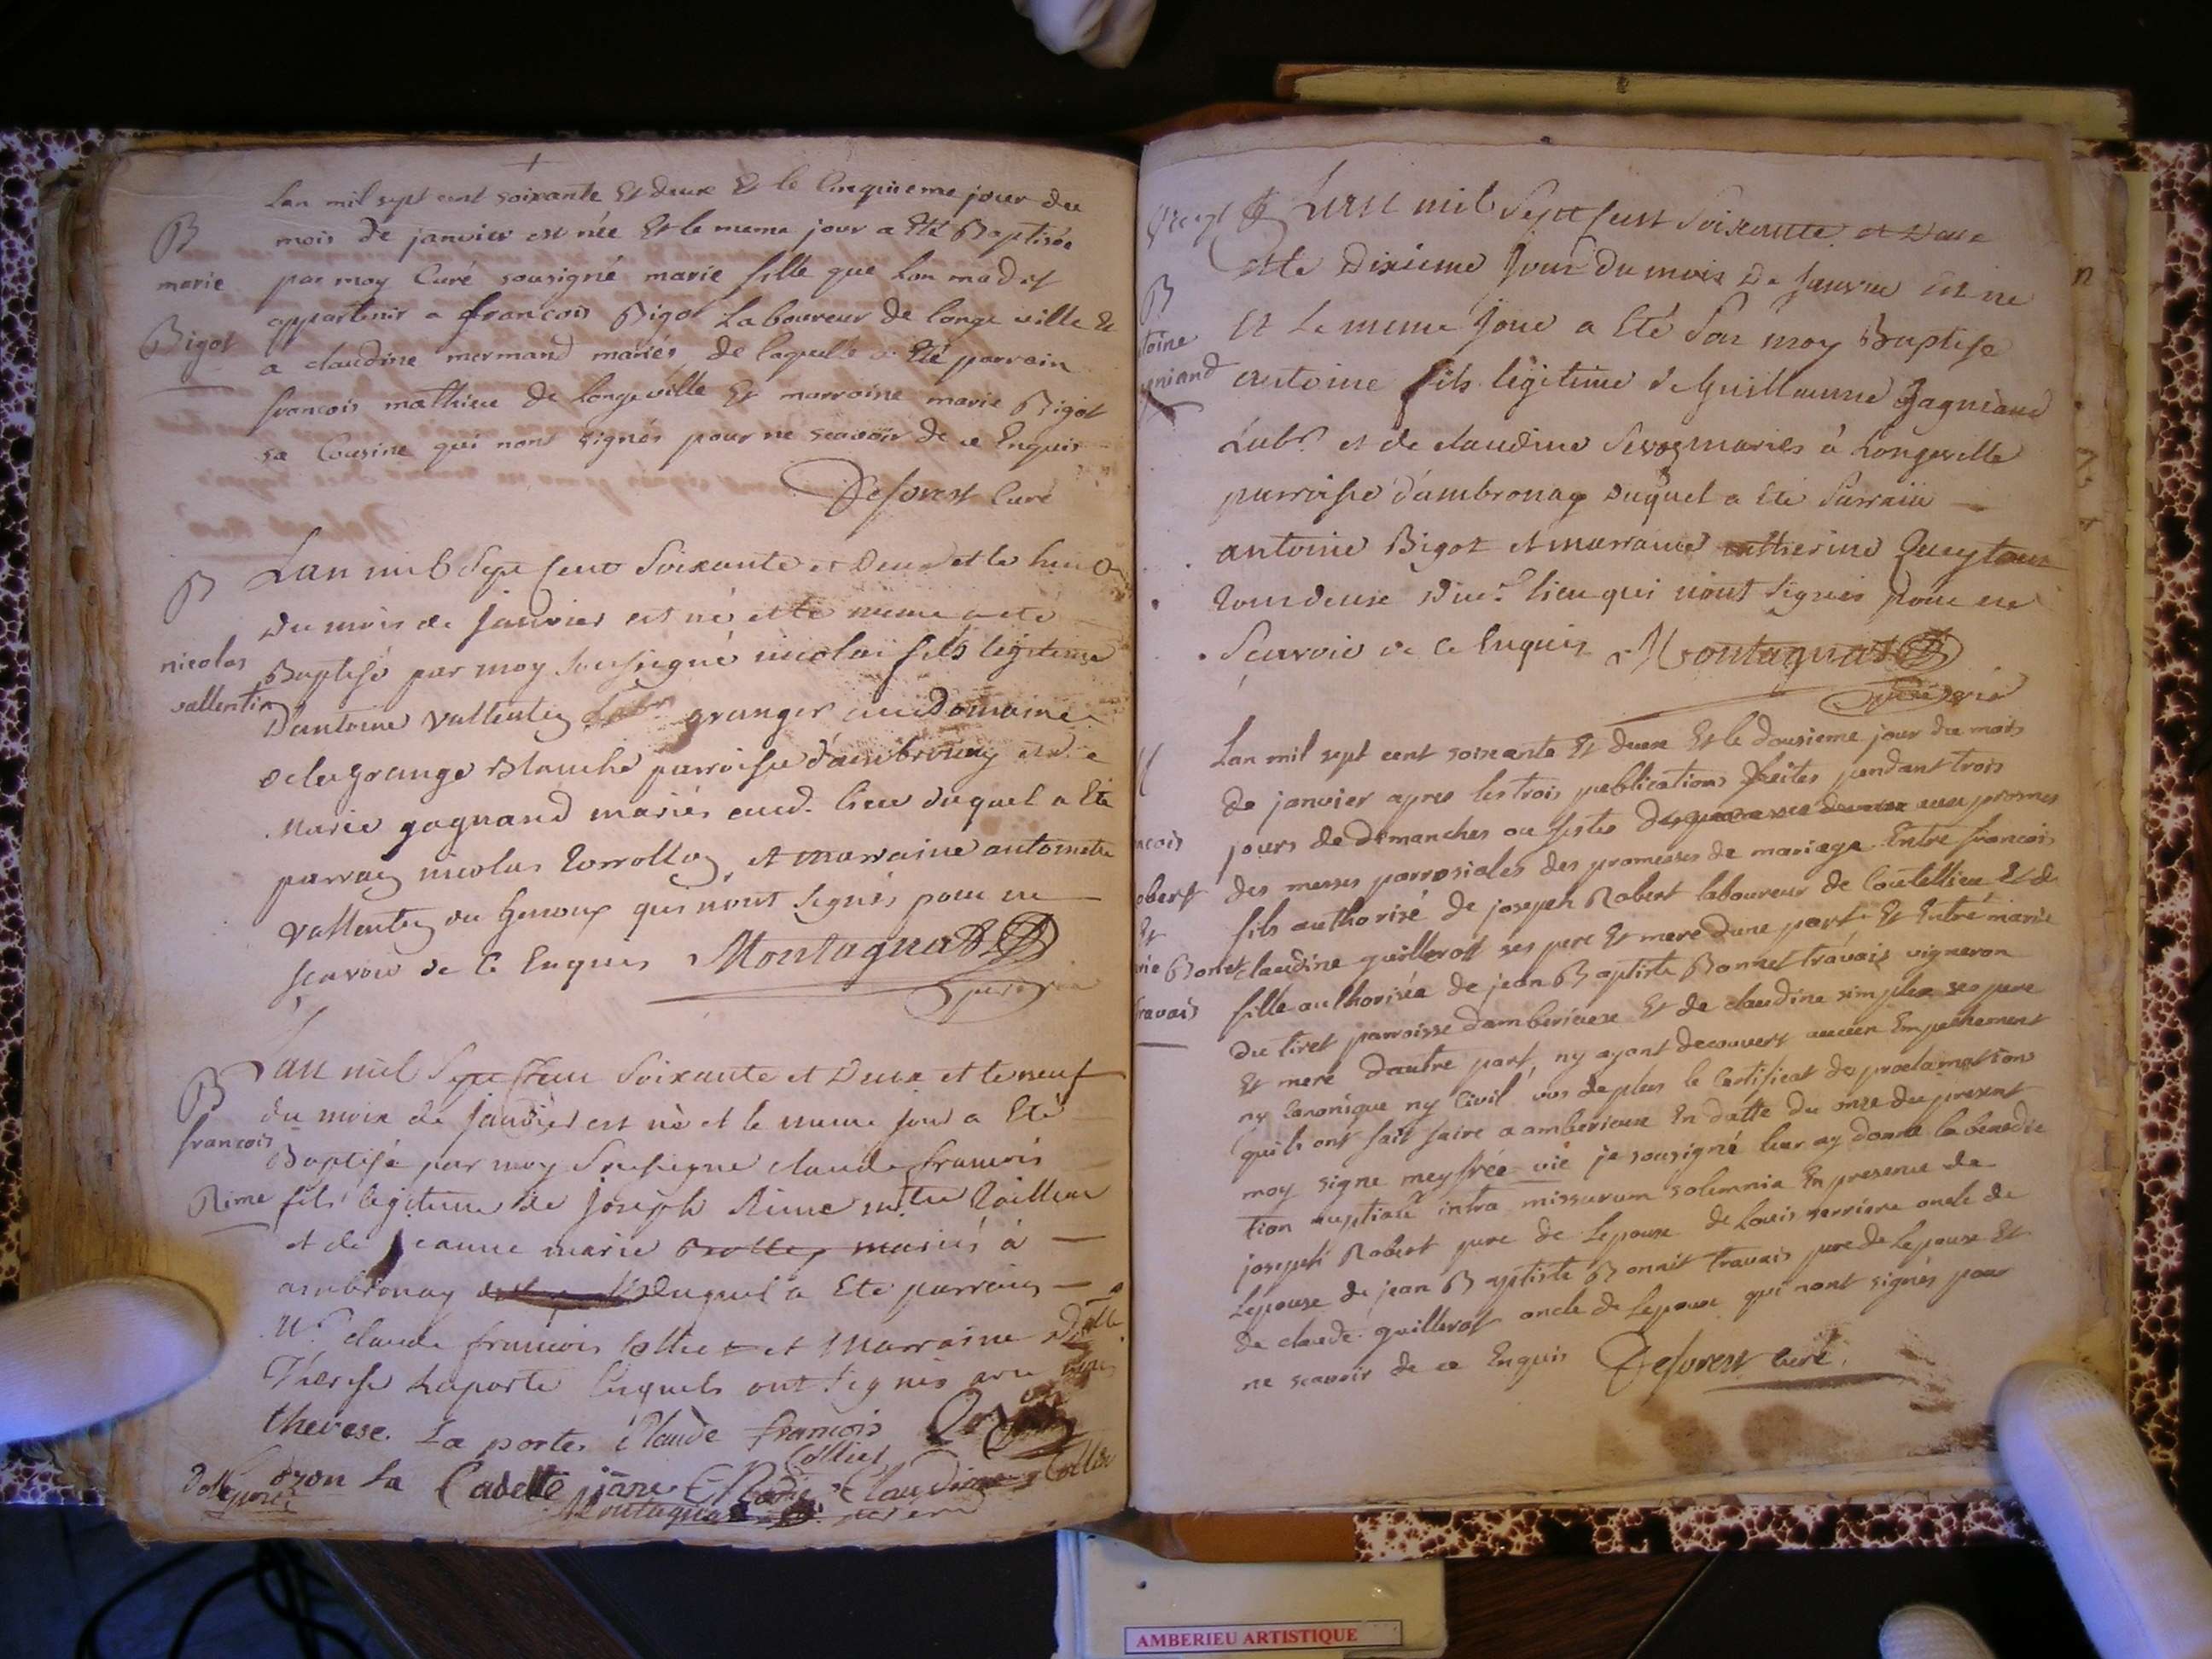 Lan mil sept cent soixante Et deux Et le Cinquieme jour du
mois de janvier est née Et le meme jour a Eté Baptisée
par moy Curé sousigné marie fille que lon madit
appartenir a francois Bigot Laboureur de longe ville Et
a claudine mermand mariés de laquelle a Eté parrain
francois mathieu de longeville Et marraine marie Bigot
sa Cousine qui nont signés pour ne scavoir de ce Enquis
Deforest Curé
B
marie
Bigot
Lan mil Sept Cent Soixante et Deux et le huit
Du mois de Janvier est né et le meme a eté
Baptisé par moy Soussigné nicolas fils legitime
D'antoine Vallentin granger au Domaine
de la grange Blanche parroisse d'ambronay et de
Marie gagnand mariés aud. lieu duquel a Eté
parrain nicolas et marraine antoinette
Vallentin du genoux qui n'ont signés pour ne
scavoir de ce Enquis Montagnat
B
nicolas
vallentin
Lan mil Sept Cent Soixante et Deux et le neuf
du mois de Janvier est né et le meme jour a Eté
Baptisé par moy Soussigné claude francois
fils legitime de Joseph Rime mtre Tailleur
et de Jeanne marie mariés à
ambronay Duquel a Eté parrain
Mr. claude francois Colliet et Marraine Dlle
Therese Laporte lesquels ont signés avec nous
therese La porte Claude francois
Collies
ozon la Cadette jane Claudine
Montagnat
B
francois
Rime
Lan mil Sept Cent Soixante et Deux
et le Dixieme Jour du mois De Janvier Est né
Et Le meme Jour a Eté Par moy Baptisé
antoine fils legitime de Guillaume Gagniand
Labr. et de claudine mariés à Longeville
parroisse d'ambronay Duquel a Eté Parrain
antoine Bigot et marraine catherine
dud. lieu qui n'ont signés pour ne
Scavoir de ce Enquis Montagnat
B
toine
gniand
Lan mil sept cent soixante Et deux Et le dousieme jour du mois
de janvier apres les trois publications faites pendant trois
jours de dimanches ou festes aux prosnes
des messes parrosiales des promesses de mariage Entre francois
fils authorisé de joseph Robert laboureur de Coutellieu Et de
claudine guillerost ses pere Et mere dune part Et Entre marie
fille authorisée de jean Baptiste Bonnet travais vigneron
du tiret parroisse damberieux Et de claudine simplex ses pere
Et mere dautre part, ny ayant decouvert aucun Empechement
ny Canonique ny Civil, vus de plus le Certificat de proclamations
quils ont fait faire a amberieux En datte du onze du present
moy signe meyfrée vic je sousigné leur ay donné la benedic
tion nuptiale intra missarum solemnia En presence de
joseph Robert pere de Lepoux de Louis oncle de
Lepouse de jean Baptiste Bonnet travais pere de Lepouse Et
de claude guillerost oncle de Lepoux qui nont signés pour
ne scavoir de ce Enquis Deforest curé
ncois
obert
Et
rie Bonet
ravais
AMBERIEU ARTISTIQUE